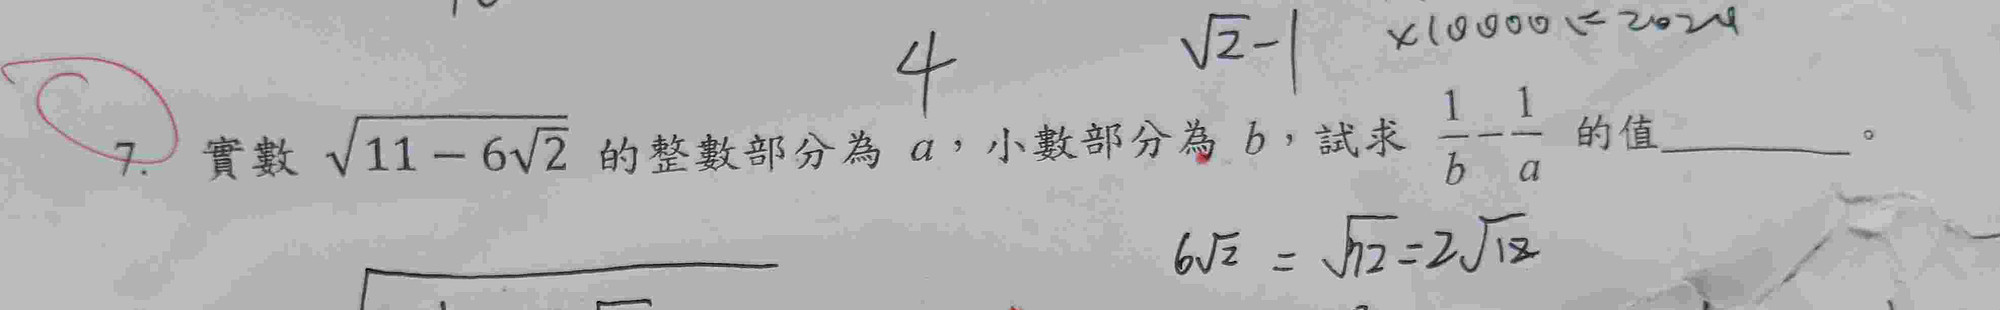 4 √2-1 ×10000 <= 2024
7. 實數 √(11-6√2) 的整數部分為 a，小數部分為 b，試求 1/b - 1/a 的值________。
6√2 = √72 = 2√18